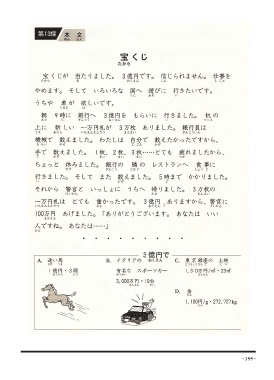 第13課 本文
宝くじ
たから
宝くじが 当たりました。 3億円です。 信じられません。 仕事を
やめます。 そして いろいろな 国へ 遊びに 行きたいです。
うちや 車が 欲しいです。
朝 9時に 銀行へ 3億円を もらいに 行きました。 机の
上に 新しい 一万円札が 3万枚 ありました。 銀行員は
機械で 数えました。 わたしは 自分で 数えたかったですから、
手で 数えました。 1枚、2枚、3枚……とても 疲れましたから、
ちょっと 休みました。 銀行の 隣の レストランへ 食事に
行きました。 そして また 数えました。 5時まで かかりました。
それから 警官と いっしょに うちへ 帰りました。 3万枚の
一万円札は とても 重かったです。 3億円 ありますから、警官に
100万円 あげました。「ありがとうございます。 あなたは いい
人ですね。 あなたは……」
3億円で
A. 速い馬
1億円・3頭
B. イタリアの
有名な スポーツカー
3,000万円・10台
C. 東京銀座の 土地
1,300万円/㎡・23㎡
D. 金
1,100円/g・272.727kg
- 155 -